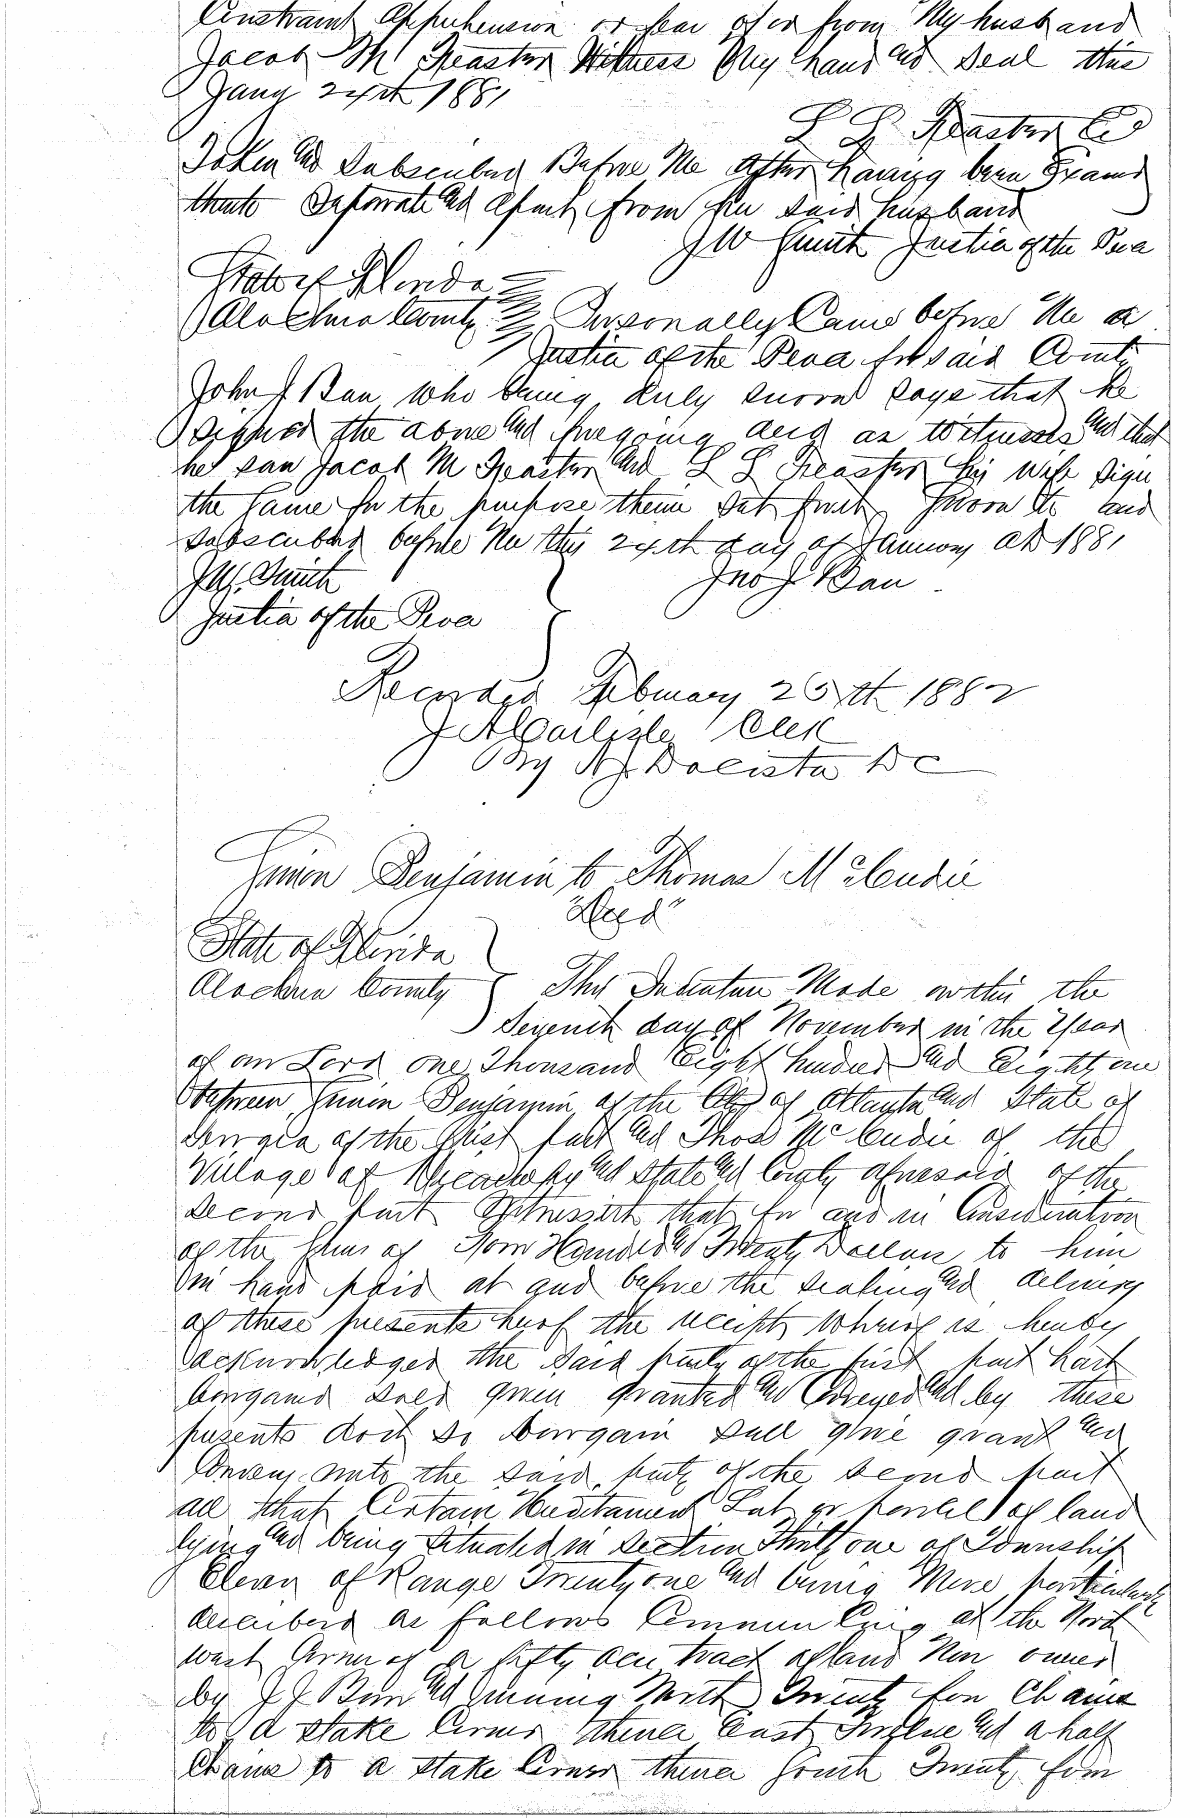 Constraint Apprehension or fear of or from My husband
Jacob M Feaster Witness My hand and Seal this
Jany 24th 1881
L L Feaster
Taken and Subscribed Before Me after having been Exami
thereto Seperate and apart from her said husband
J W Smith Justice of the Peace
State of Florida
Alachua County Personally Came before Me a
Justice of the Peace for said County
John J Barr who being duly sworn says that he
signed the above and foregoing deed as witness and that
he saw Jacob M Feaster and L L Feaster his wife sign
the same for the purpose therein set forth Sworn to and
subscribed before Me this 24th day of January AD 1881
J.W. Smith Jno J Barr
Justice of the Peace
Recorded February 25th 1882
J A Carlisle Clerk
By DC
Simon Benjamin to Thomas McCudie
"Deed"
State of Florida
Alachua County This Indenture Made on this the
Seventh day of November in the Year
of our Lord one Thousand Eight hundred and Eighty one
between Simon Benjamin of the City of Atlanta and State of
Georgia of the First part and Thos McCudie of the
Village of and State and County aforesaid of the
second part Witnesseth that for and in Consideration
of the sum of Four Hundred and Twenty Dollars to him
in hand paid at and before the sealing and delivery
of these presents hereof the receipt whereof is hereby
acknowledged the said party of the first part hath
bargained sold given granted and Conveyed and by these
presents doth so bargain sell give grant and
Convey unto the said party of the second part
all that Certain Hereditament Lot or parcel of land
lying and being situated in section Thirty one of Township
Eleven of Range Twenty one and being More particularly
described as follows Commencing at the North
west Corner of a fifty acre tract of land Now owned
by J J Barr and running North Twenty four Chains
to a stake Corner thence East Twelve and a half
Chains to a stake Corner thence South Twenty four